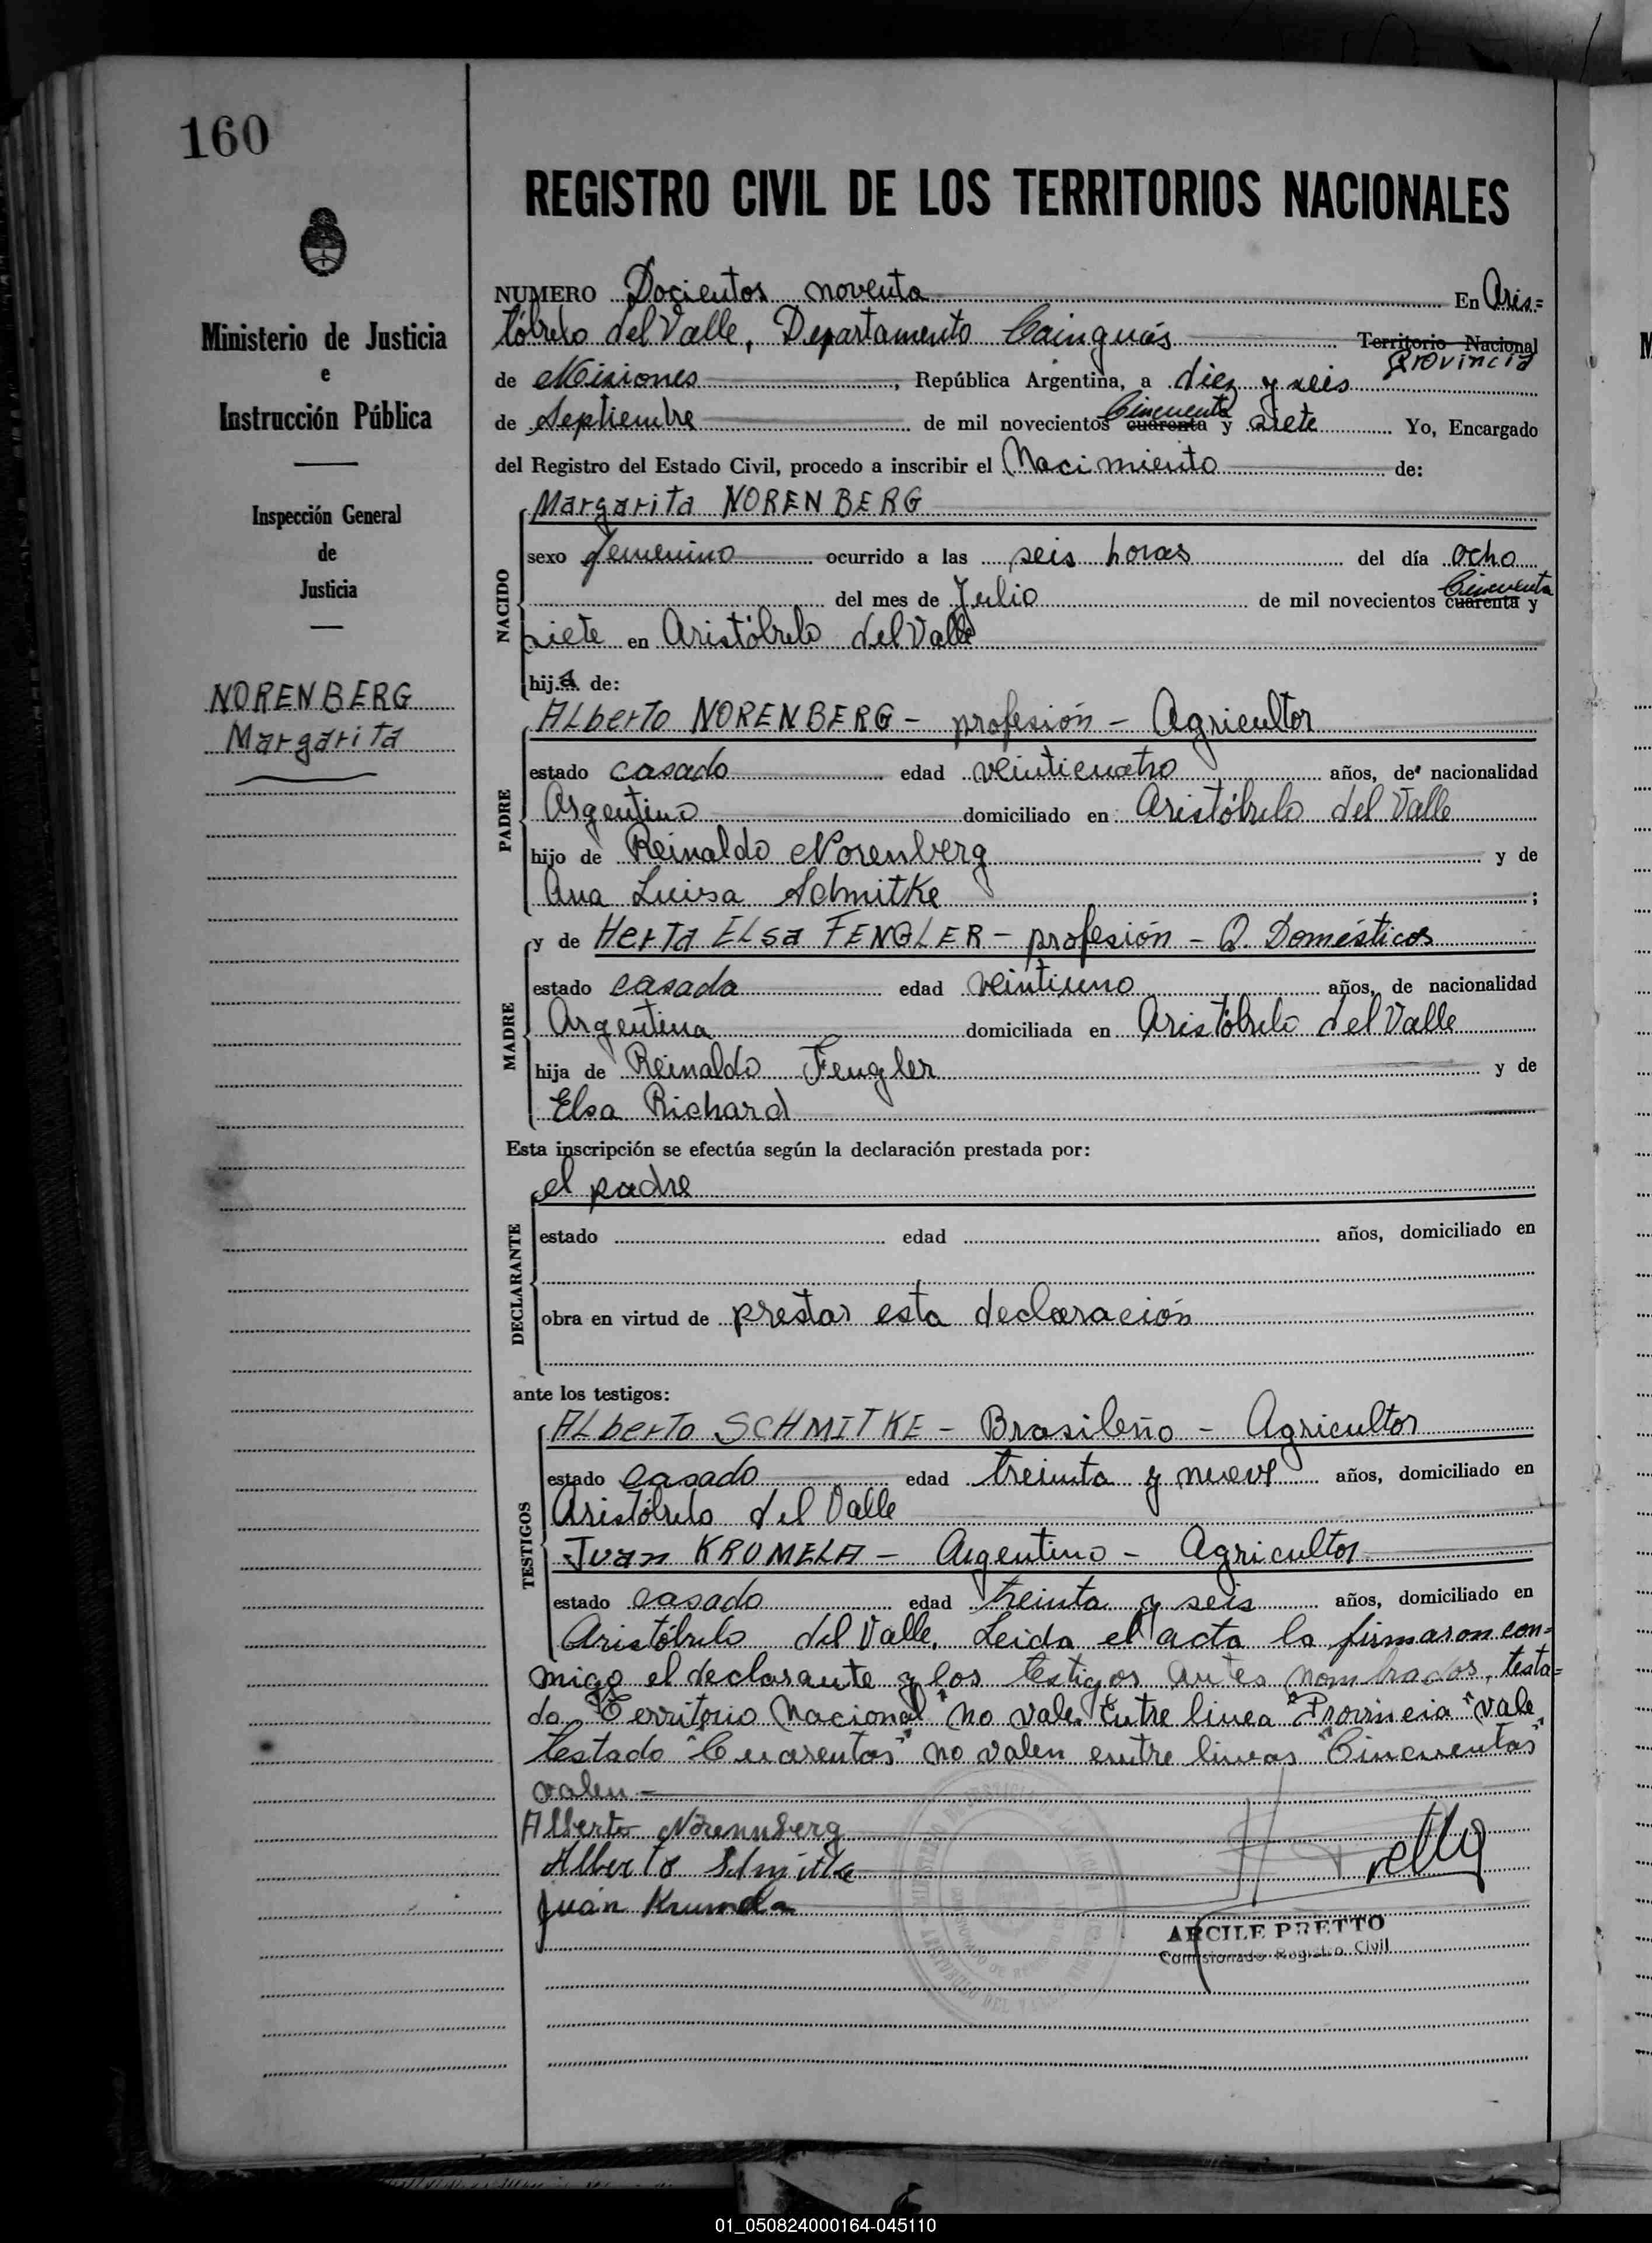 160
REGISTRO CIVIL DE LOS TERRITORIOS NACIONALES
Ministerio de Justicia
e
Instrucción Pública
Inspección General
de
Justicia
NORENBERG
Margarita
NUMERO Docientos noventa En Aris=
tóbulo del Valle, Departamento Cainguás Territorio Nacional
Provincia
de Misiones, República Argentina, a diez y seis
Cincuenta
de Septiembre de mil novecientos cuarenta y siete Yo, Encargado
del Registro del Estado Civil, procedo a inscribir el Nacimiento de:
NACIDO
Margarita NORENBERG
sexo femenino ocurrido a las seis horas del día ocho
Cincuenta
del mes de Julio de mil novecientos cuarenta y
siete en Aristóbulo del Valle
hija de:
PADRE
Alberto NORENBERG - profesión - Agricultor
estado casado edad veinticuatro años, de nacionalidad
Argentino domiciliado en Aristóbulo del Valle
hijo de Reinaldo Norenberg y de
Ana Luisa Schmitke ;
MADRE
y de Herta Elsa FENGLER - profesión - Q. Domésticos
estado casada edad veintiuno años, de nacionalidad
Argentina domiciliada en Aristóbulo del Valle
hija de Reinaldo Fengler y de
Elsa Richard
Esta inscripción se efectúa según la declaración prestada por:
DECLARANTE
el padre
estado edad años, domiciliado en
obra en virtud de prestar esta declaración
ante los testigos:
TESTIGOS
Alberto SCHMITKE - Brasileño - Agricultor
estado casado edad treinta y nueve años, domiciliado en
Aristóbulo del Valle
Juan KRUMELA - Argentino - Agricultor
estado casado edad treinta y seis años, domiciliado en
Aristóbulo del Valle. Leida el acta la firmaron con=
migo el declarante y los testigos antes nombrados, testa=
do "Territorio Nacional" no vale. Entre linea "Provincia" vale
testado "Cuarentas" no valen entre lineas "Cincuentas"
valen -
Alberto Norennberg
Alberto Schmitke
Juan Krumela
ARCILE PRETTO
Comisionado Registro Civil
01_050824000164-045110